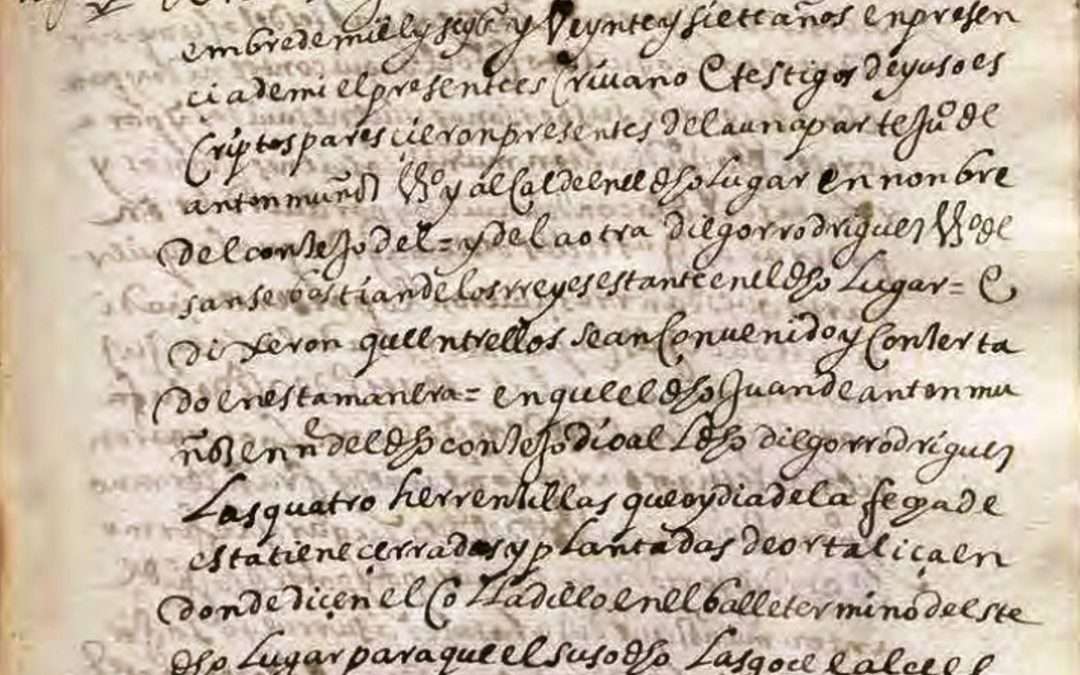 embre de mill y seysº y Veynte y siete años en presen
cia de mi el presente escrivano E testigos de yuso es
Criptos parescieron presentes de la una parte juº de
anton muñoz Vº y alCalde en el dho Lugar en nonbre
del conzejo del = y de la otra diego rrodriguez Vº de
san sebastian de los rreyes estante en el dho Lugar = E
dixeron que entrellos sean Convenido y Conzerta
do en esta manera = en que el dho Juan de anton mu
ñoz en ne del dho conzejo dio al dho diego rrodriguez
Las quatro herrenzillas que oy dia de la feya de
esta tiene çerradas y plantadas de ortaliça en
donde diçen el Colladillo en el balle termino deste
dho Lugar para que el susodho Las goce